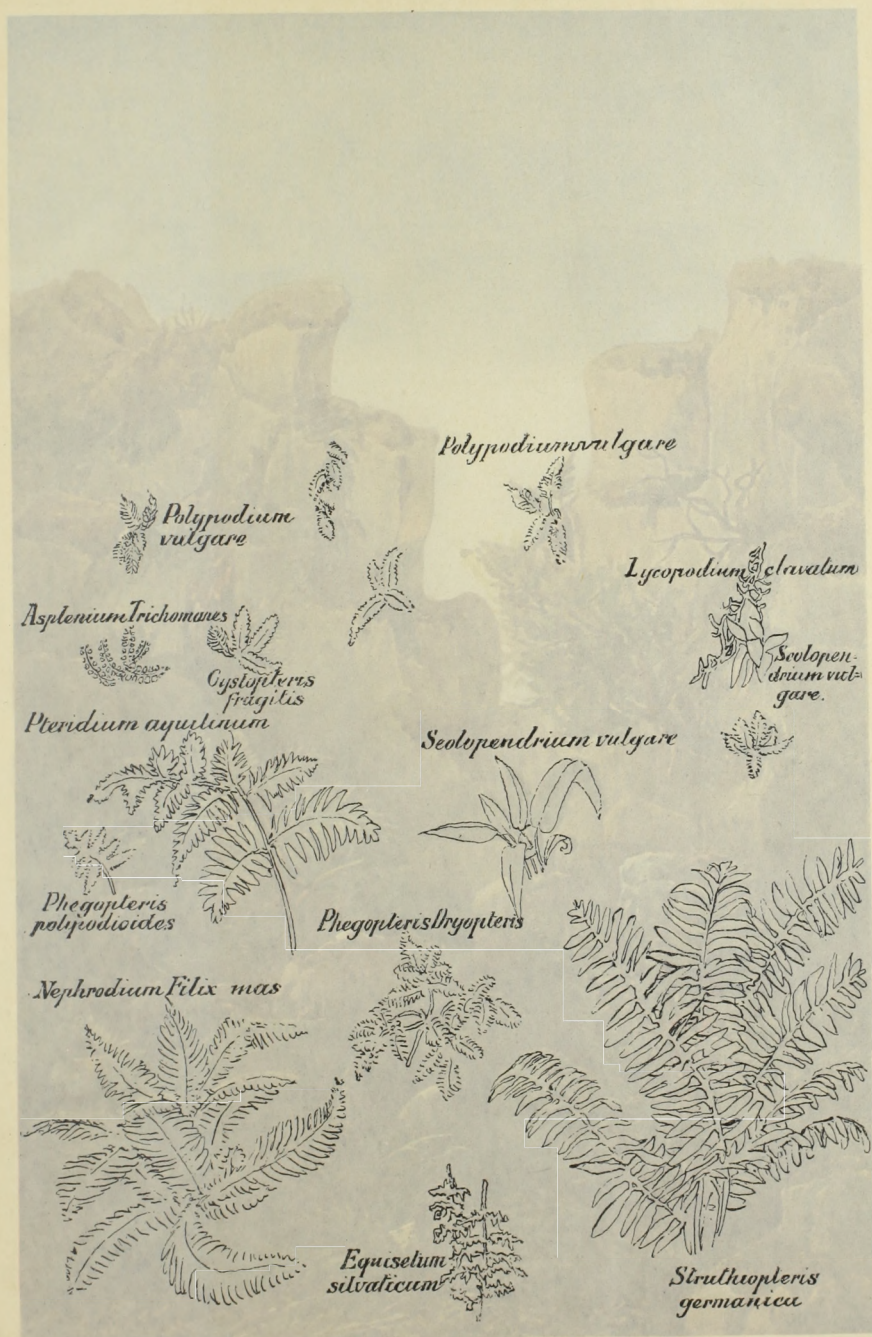 Polypodium vulgare
Polypodium
vulgare
Lycopodium clavatum
Asplenium Trichomanes
Scolopen-
drium vul-
gare.
Cystopteris
fragilis
Pteridium aquilinum
Scolopendrium vulgare
Phegopteris
polypodioides
Phegopteris Dryopteris
Nephrodium Filix mas
Equisetum
silvaticum
Struthiopteris
germanica